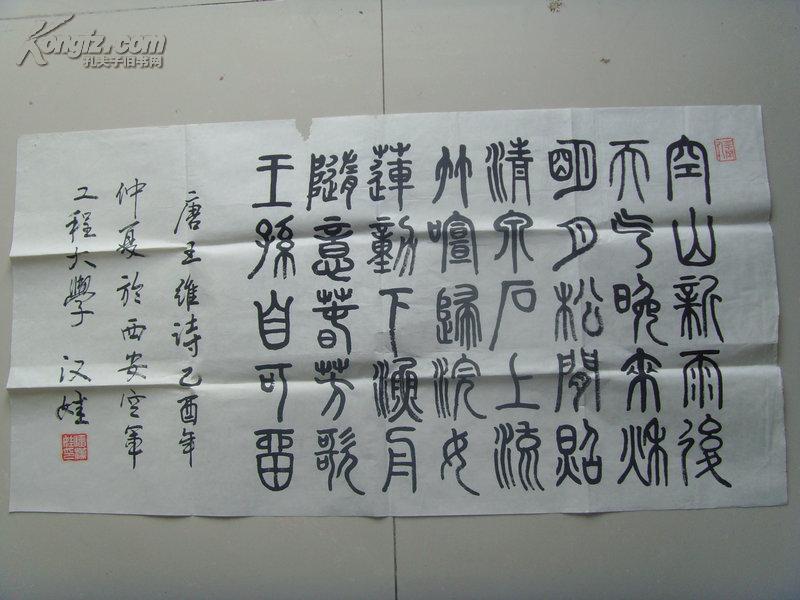 Kongfz.com
孔夫子旧书网
空山新雨後
天气晚來秋
明月松間照
清泉石上流
竹喧歸浣女
蓮動下漁舟
隨意春芳歇
王孫自可留
唐王維詩乙酉年
仲夏於西安空军
工程大學 汉娃